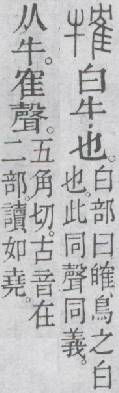 㹊白牛也。白部曰㿥、鳥之白
也。此同聲同義。
从牛。隺聲。五角切。古音在
二部。讀如堯。